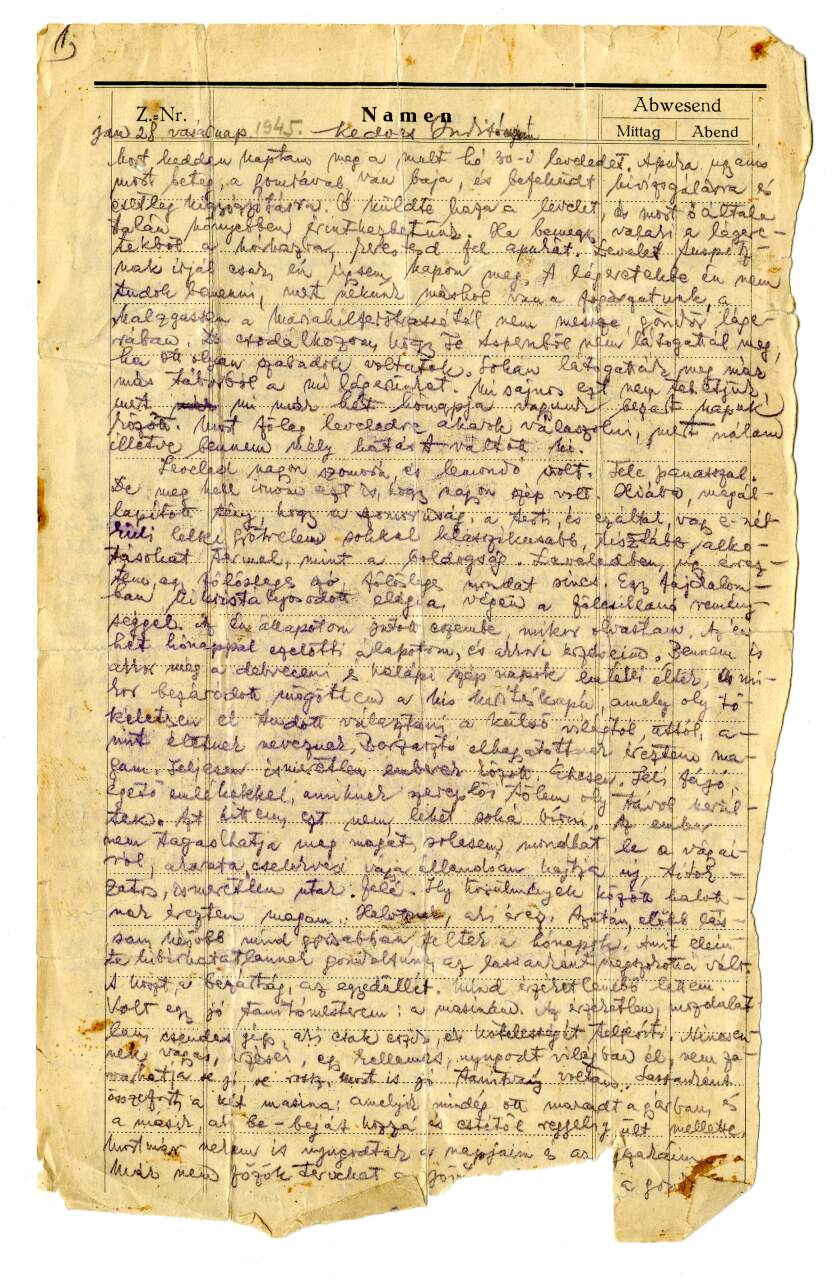 1)
Z.-Nr. Namen Abwesend
Mittag Abend
jan 28 vasárnap 1945. Kedves
most kedden kaptam meg a mult hó 30-i leveledet. Apuka ugyanis
most beteg, a gyomrával van baja, és befeküdt kivizsgálásra és
esetleg kigyógyításra. Ő küldte haza a levelet, és most őáltala
talán könnyebben érintkezhetünk. Ha bemegy valaki a lágere-
tekből a kórházba, keresd fel apukát. Levelet
nak írjál csak, én úgysem kapom meg. A lágeretekbe én nem
tudok bemenni, mert nékünk máshol van a
a Mariahilferstrassétól nem messze, láge-
rában. De csodálkozom, hogy Te nem látogattál meg,
ha ott olyan szabadok voltatok. Sokan látogatták meg már
más táborból a mi lágerünket. Mi sajnos ezt nem tehetjük,
mert mi már hét hónapja vagyunk bezárt kapuk
között. Most főleg leveledre akarok válaszolni, mert nálam
illetve bennem mély hatást váltott ki.
Leveled nagyon szomorú és lemondó volt. Tele panasszal.
De meg kell írnom azt is, hogy nagyon szép volt. Hiába, megál-
lapított tény, hogy a szomorúság, a testi, és ezáltal, vagy e nél-
küli lelki gyötrelem sokkal klasszikusabb, tisztább alko-
tásokat termel, mint a boldogság. Leveledben, úgy érez-
tem, egy fölösleges szó, fölösleges mondat sincs. Egy fájdalom-
ban kikristályosodott elégia, végén a fölcsillanó remény-
séggel. Az én állapotom jutott eszembe, mikor olvastam. Az én
hét hónappal ezelőtti állapotom, és akkori érzéseim. Bennem is
akkor még a debreceni és szép napok emlékei éltek, és mi-
kor bezáródott mögöttem a kis kerítéskapu, amely oly tö-
kéletesen el tudott választani a külső világtól, attól, a-
mit életnek neveznek, borzasztó elhagyatottnak éreztem ma-
gam. Teljesen ismeretlen emberek között. Éhesen. Teli fájó,
égető emlékekkel, amiknek szereplői tőlem oly távol kerül-
tek. Azt hittem, ezt nem lehet soha bírni. Az ember
nem tagadhatja meg magát, sohasem mondhat le a vágyai-
ról, akarata, cselekvési vágya állandóan hajtja új, titok-
zatos, ismeretlen utak felé. Ily körülmények között halott-
nak éreztem magam. Halottnak, aki érez. Azután, előbb las-
san később mind gyorsabban teltek a hónapok. Amit elein-
te kibírhatatlannak gondoltunk, az lassanként megszokottá vált.
A koszt, a bezártság, az egyedüllét. Mind érzéketlenebb lettem.
Volt egy jó tanítómesterem: a masinám. Az érzéketlen, mozdulat-
lan, csendes gép, aki csak eszik, és kötelességét teljesíti. Nincsen-
nek vágyai, érzései, egy kellemes, nyugodt világban él, nem za-
varhatja se jó, se rossz, most is jó tanítvány voltam. Lassanként
összeforrt a két masina: amelyik mindég ott maradt a gyárban, és
a másik, aki be-bejárt hozzá és estétől reggelig ült mellette.
Most már nekem is nyugodtak a napjaim és az éjszakáim
Már nem főzök terveket a
a